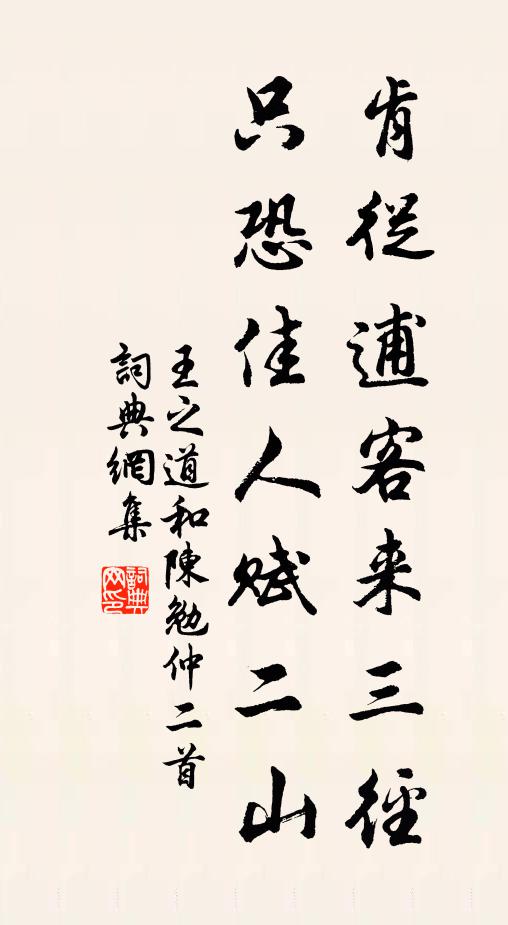 肯從逋客来三徑
只恐佳人賦二山
王之道和陳勉仲二首
詞典網集
詞典網印